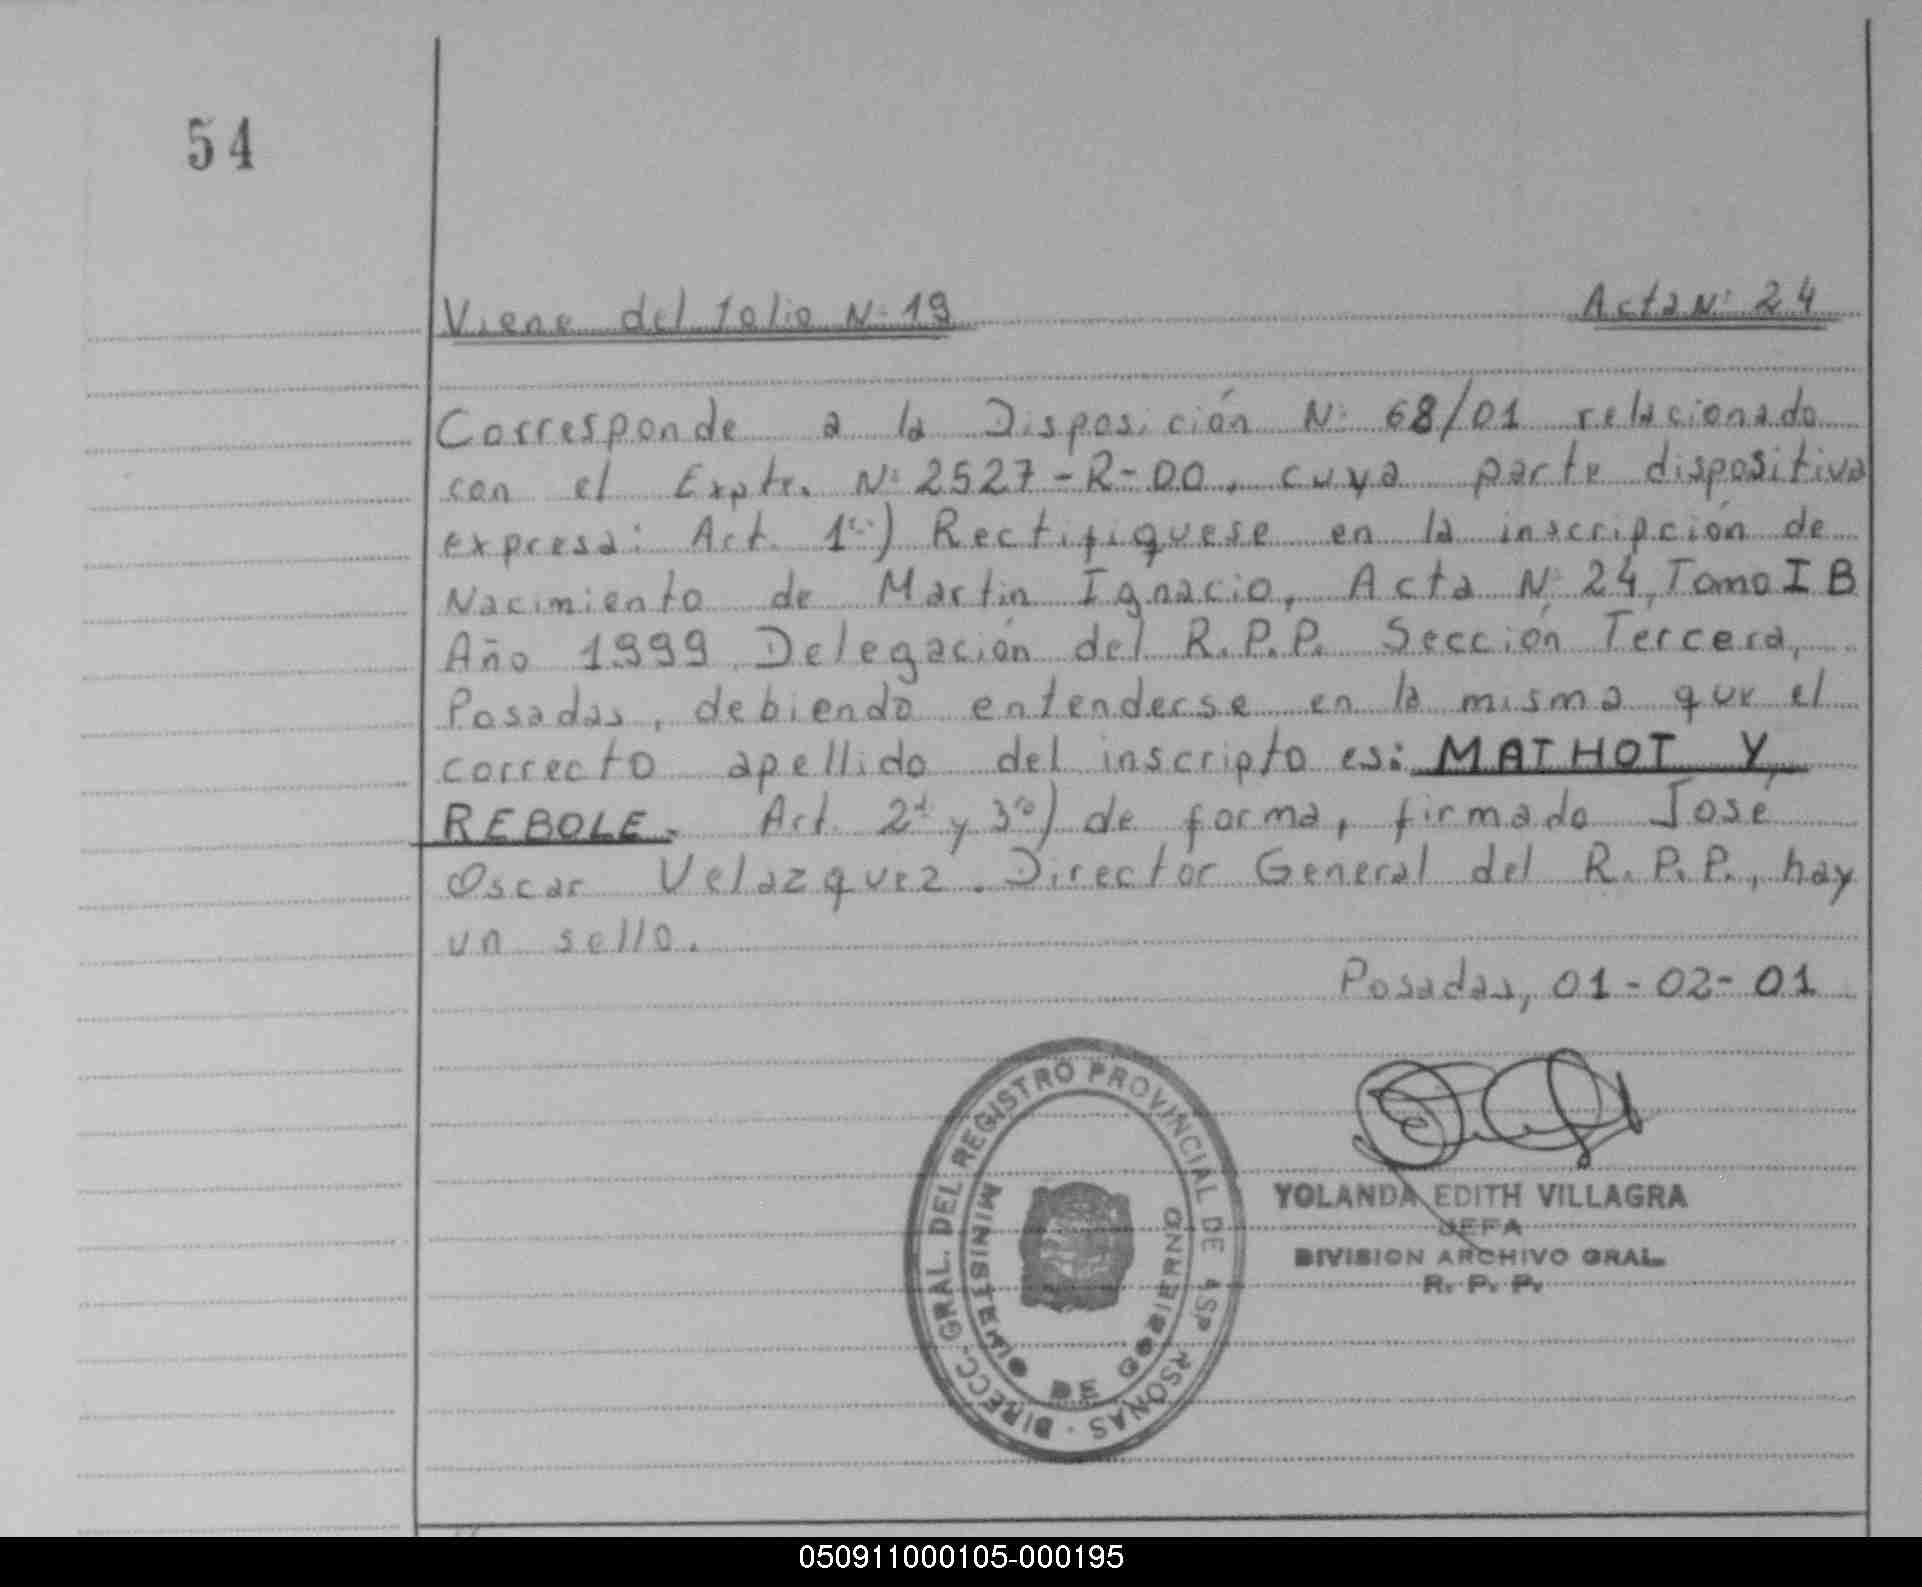 54
Viene del folio N: 19
Acta N: 24
Corresponde a la Disposición N: 68/01 relacionado
con el Expte. N: 2527-R-00, cuya parte dispositiva
expresa: Art. 1º) Rectifiquese en la inscripción de
Nacimiento de Martin Ignacio, Acta N: 24, Tomo I B
Año 1999, Delegación del R.P.P. Sección Tercera,
Posadas, debiendo entenderse en la misma que el
correcto apellido del inscripto es: MATHOT Y
REBOLE. Art. 2º y 3º) de forma, firmado José
Oscar Velazquez. Director General del R.P.P., hay
un sello.
Posadas, 01-02-01
DIRECC-GRAL. DEL REGISTRO PROVINCIAL DE ASP RSONAS
MINISTERIO DE GOBIERNO
YOLANDA EDITH VILLAGRA
JEFA
DIVISION ARCHIVO GRAL.
R. P. P.
050911000105-000195